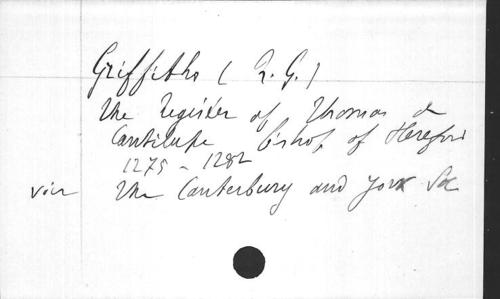 Griffiths ( R. G.)
The Register of Thomas de
Cantilupe bishop of Hereford
1275 - 1282
voir The Canterbury and York Soc